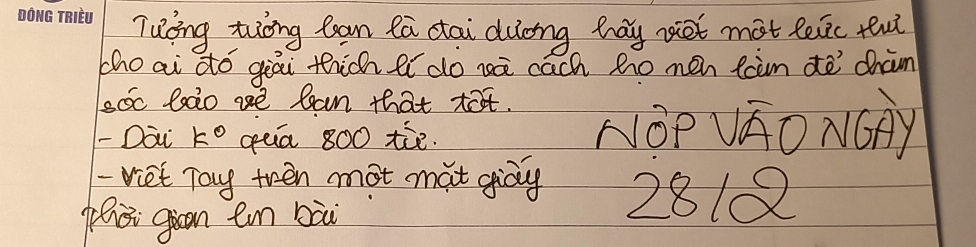 ĐÔNG TRIỀU
Tưởng tưởng bạn là đại dương hãy viết một bức thư
cho ai đó giải thích lí do và cách họ nên làm để chăm
sóc bảo vệ bạn thật tốt.
- Dài k° quá 800 từ.
- Viết Tay trên một mặt giấy
Thời gian làm bài
NỘP VÃO NGÀY
28/2